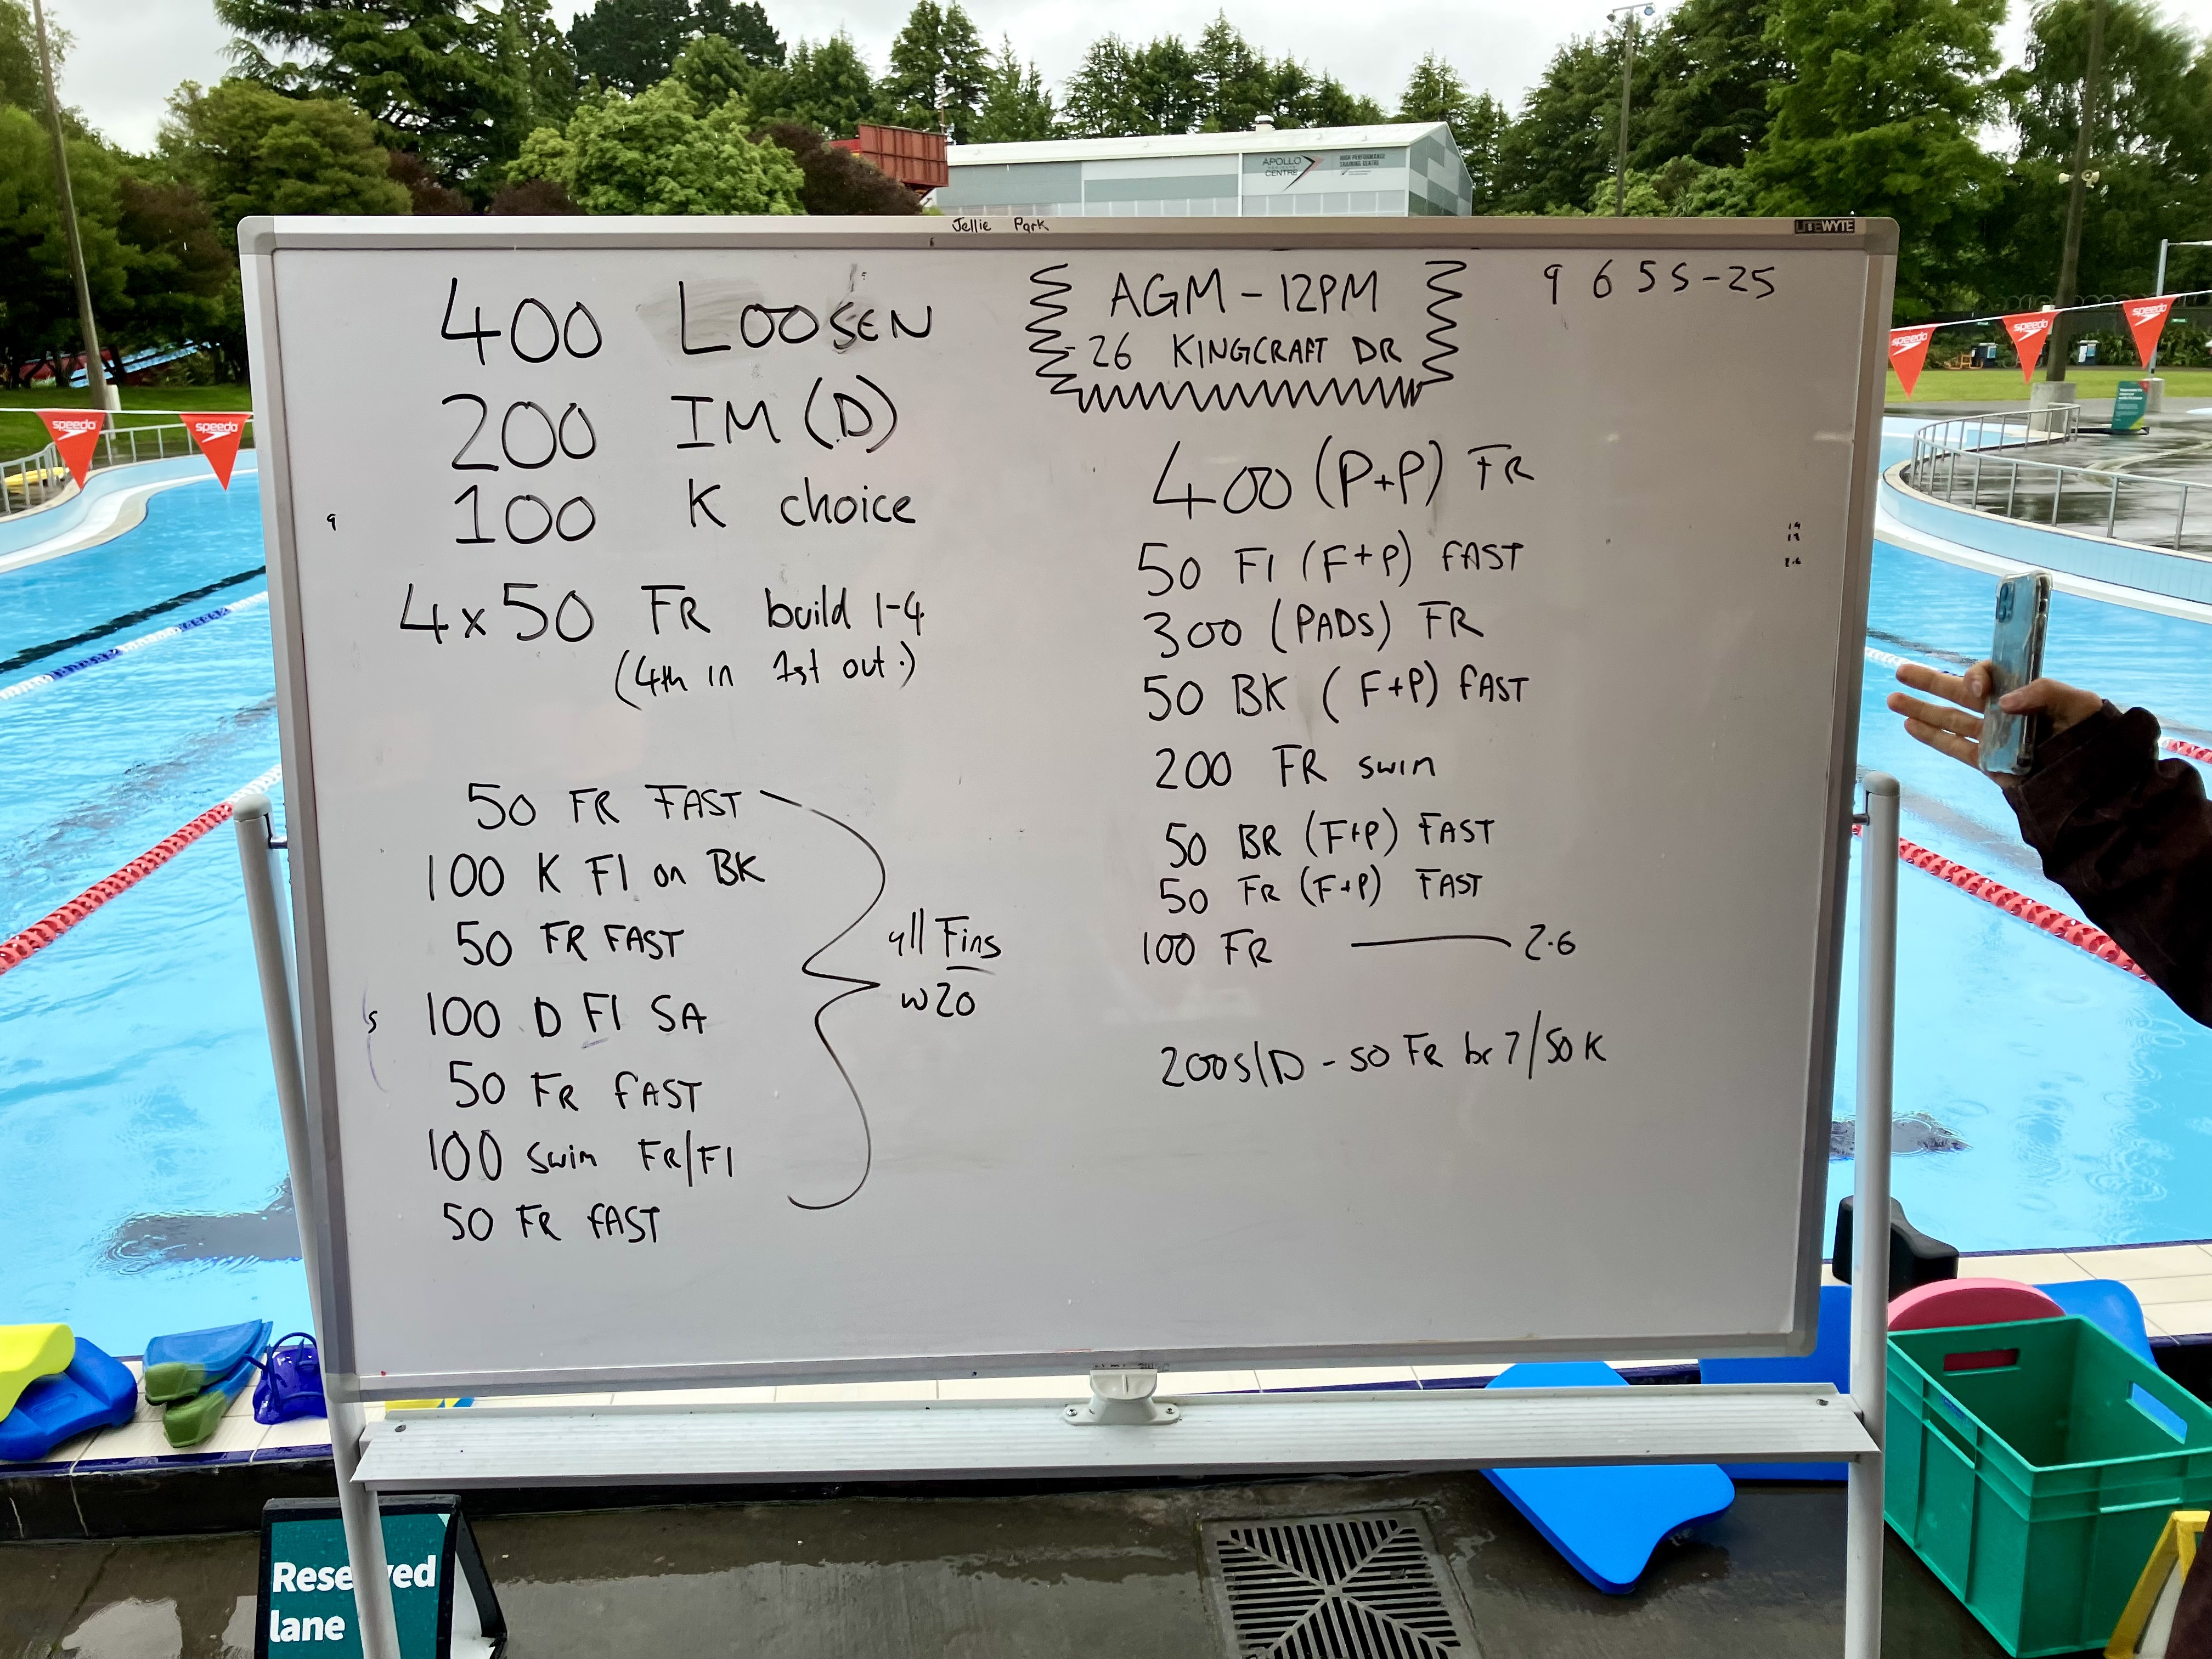 APOLLO
CENTRE
HIGH PERFORMANCE
TRAINING CENTRE
Jellie Park
LITEWYTE
400 LOOSEN
200 IM (D)
100 K choice
4x50 FR build 1-4
(4th in 1st out.)
50 FR FAST
100 K FI on BK
50 FR FAST
100 D FI SA
50 FR FAST
100 swim FR/FI
50 FR FAST
all Fins
w20
AGM - 12PM
26 KINGCRAFT DR
9 6 5 5 - 25
400 (P+P) FR
50 FI (F+P) FAST
300 (PADS) FR
50 BK (F+P) FAST
200 FR swim
50 BR (F+P) FAST
50 FR (F+P) FAST
100 FR — 2.6
200 S/D - 50 FR br 7/50 K
9
5
speedo
speedo
speedo
speedo
speedo
Reserved
lane